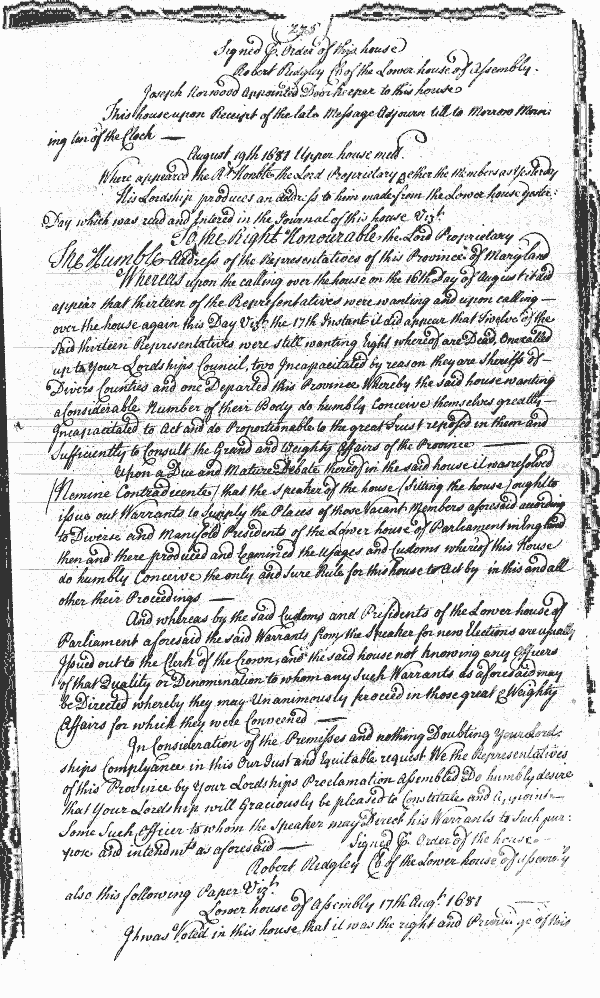 275
Signed P. Order of this house
Robert Ridgley Cl of the Lower house of Assembly.
Joseph Norwood Appointed Doorkeeper to this house
This house upon Receipt of the late Message Adjourn till to Morrow Morn:
ing ten of the Clock —
August 19th 1681 Upper house mett.
Where appeared the Rt Honble the Lord Proprietary & other the Members as Yesterday
His Lordship produces an address to him made from the Lower house yester:
Day which was read and Entered in the Journal of this house Vizt.
To the Right Honourable the Lord Proprietary
The Humble Address of the Representatives of this Province of Maryland
Whereas upon the calling over the house on the 16th Day of August it did
appear that thirteen of the Representatives were wanting and upon calling —
over the house again this Day Vizt. the 17th Instant it did appear that Twelve of the
said thirteen Representatives were still wanting Eight whereof are Dead, One called
up to Your Lordships Council, two Incapacitated by reason they are Sheriffs of —
Divers Counties and one Departed this Province Whereby the said house wanting
a Considerable Number of their Body do humbly Conceive themselves greatly —
Incapacitated to Act and do Proportionable to the great Trust reposed in them and
Sufficiently to Consult the Grand and Weighty Affairs of the Province —
Upon a Due and Mature Debate thereof in the said house it was resolved
(Nemine Contradicente) that the Speaker of the house (Sitting the house) ought to
issue out Warrants to Supply the Places of those Vacant Members aforesaid according
to Diverse and Manifold Presidents of the Lower house of Parliament in England
then and there produced and Examined the Usages and Customs whereof this House
do humbly Conceive the only and Sure Rule for this house to Act by in this and all
other their Proceedings —
And whereas by the said Customs and Presidents of the Lower house of
Parliament aforesaid the said Warrants from the Speaker for new Elections are usually
Issued out to the Clerk of the Crown, and the said house not knowing any Officers
of that Quality or Denomination to whom any Such Warrants as aforesaid may
be Directed whereby they may Unanimously proceed in those great & Weighty
Affairs for which they were Convened —
In Consideration of the Premisses and nothing Doubting Your Lord:
ships Complyance in this Our Just and Equitable request We the Representatives
of this Province by Your Lordships Proclamation Assembled Do humbly desire
that Your Lordship will Graciously be pleased to Constitute and Appoint —
Some Such Officer to whom the Speaker may Direct his Warrants to Such pur:
pose and intendmt as aforesaid — Signed P. Order of the house
Robert Ridgley Cl of the Lower house of Assembly
also this following Paper Vizt.
Lower house of Assembly 17th Augt. 1681
It was Voted in this house that it was the right and Priviledge of this